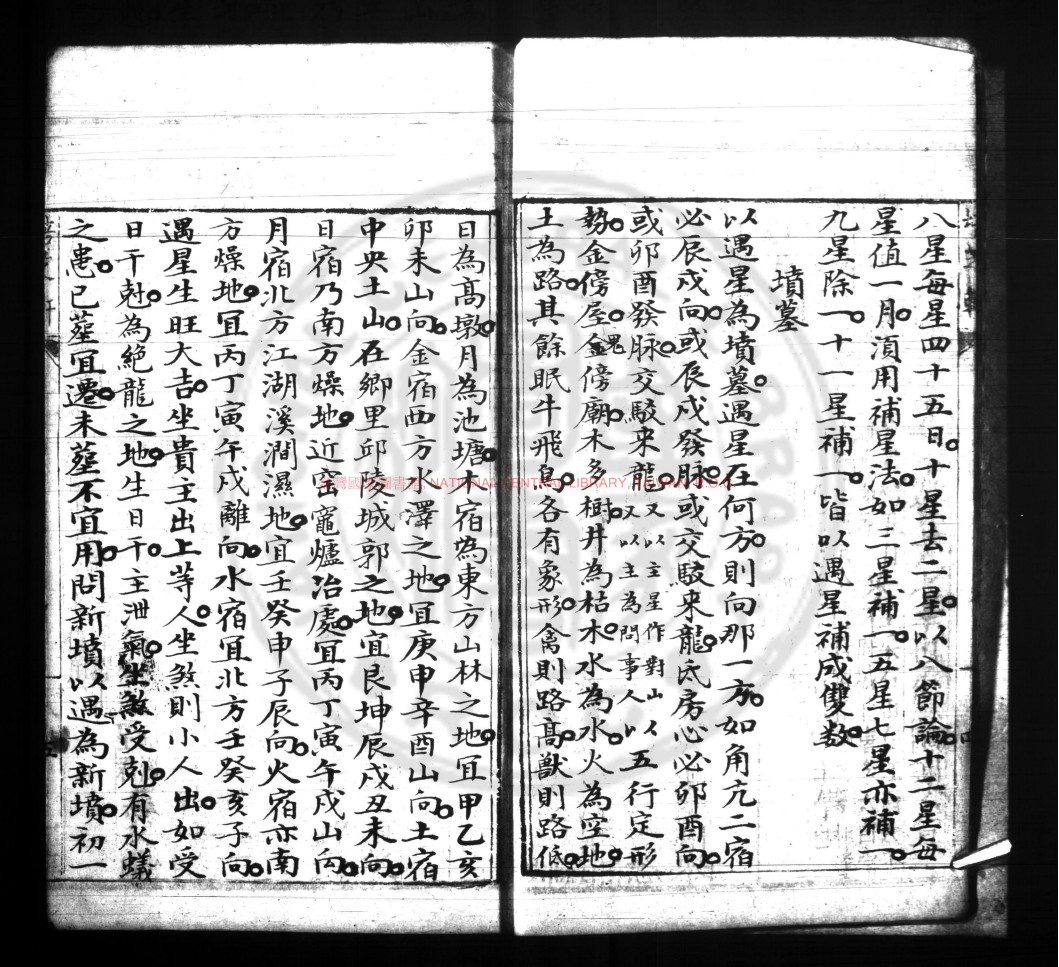 八星每星四十五日。十星去二星。以八節論。十二星每
星值一月。須用補星法。如三星補一。五星七星亦補一。
九星除一。十一星補一。皆以遇星補成雙数。
墳墓
以遇星為墳墓。遇星在何方。則向那一方。如角亢二宿
必辰戍向。或辰戍發脉。或交駁来龍。氐房心必卯酉向。
或卯酉發脉。交駁来龍。又以主星作對山以五行定形
又以主為問事人以
勢。金傍屋。鬼金傍廟。木多樹。井為枯木。水為水。火為空地。
土為路。其餘眠牛飛鳥。各有象形。禽則路高。獸則路低。
日為高墩。月為池塘。木宿為東方山林之地。宜甲乙亥
卯未山向。金宿西方水澤之地。宜庚申辛酉山向。土宿
中央土山。在鄉里邱陵城郭之地。宜艮坤辰戍丑未向。
日宿乃南方燥地。近窑竈爐冶處。宜丙丁寅午戍山向。
月宿北方江湖溪澗濕地。宜壬癸申子辰向。火宿亦南
方燥地。宜丙丁寅午戍離向。水宿宜北方壬癸亥子向。
遇星生旺大吉。坐貴主出上等人。坐煞則小人出。如受
日干尅。為絕龍之地。生日干。主泄氣。坐煞受剋。有水蟻
之患。已塟宜遷。未塟不宜用。問新墳以遇為新墳。初一
臺灣國家圖書館 NATIONAL CENTRAL LIBRARY, TAIWAN R.O.C.